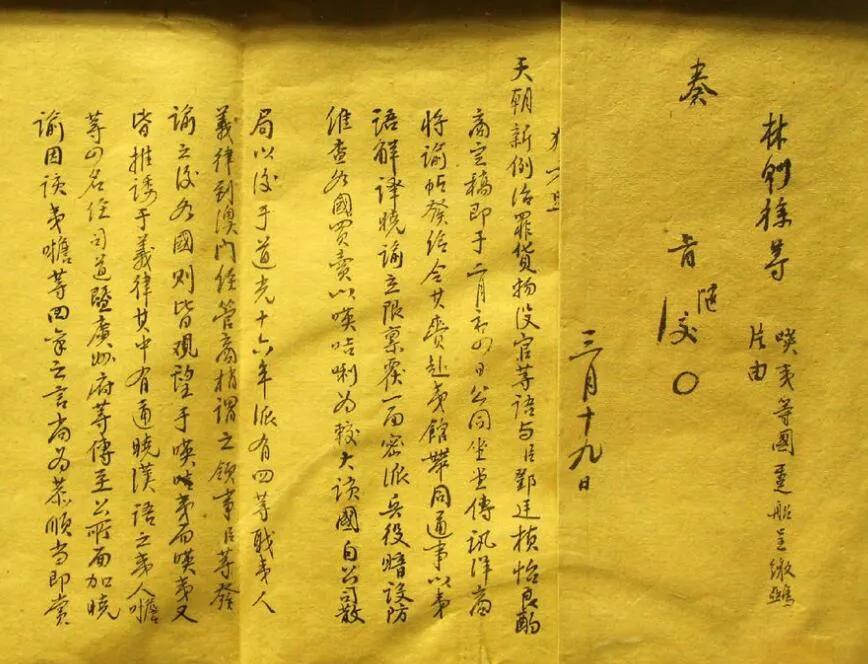 林則徐等
嘆夷等國躉船呈繳鴉
片由
奏
隨
旨
三月十九日
天朝新例治罪貨物没官等語与臣鄧廷楨怡良酌
商定稿即于二月初四日公同坐堂傳訊洋商
将諭帖發给令其賫赴夷館帶同通事以夷
語解譯曉諭立限禀覆一面密派兵役暗設防
維查各國買賣以嘆咭唎为較大该國自公司散
局以後于道光十六年派有四等职夷人
義律到澳门经管商梢謂之领事臣等發
諭之後各國则皆观望于嘆咭夷而嘆夷又
皆推諉于義律其中有通曉漢語之夷人噡
等四名经司道暨廣州府等傳至公所面加曉
諭因该夷噡等回禀之言尚为恭順当即賞